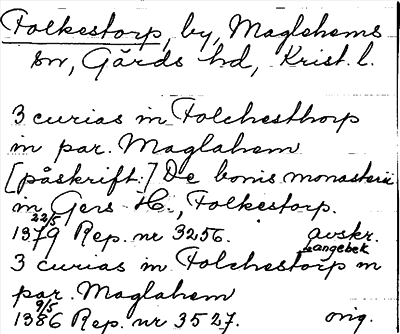 Folkestorp, by, Maglehems
sn, Gärds hd, Krist. l.
3 curias in Folchesthorp
in par. Maglahem
[påskrift:] De bonis monasterii
in Gers H., Folkestorp.
22/5
1379 Rep. nr 3256. avskr.
Langebek
3 curias in Folchestorp in
par. Maglahem
9/5
1386 Rep. nr 3527. orig.